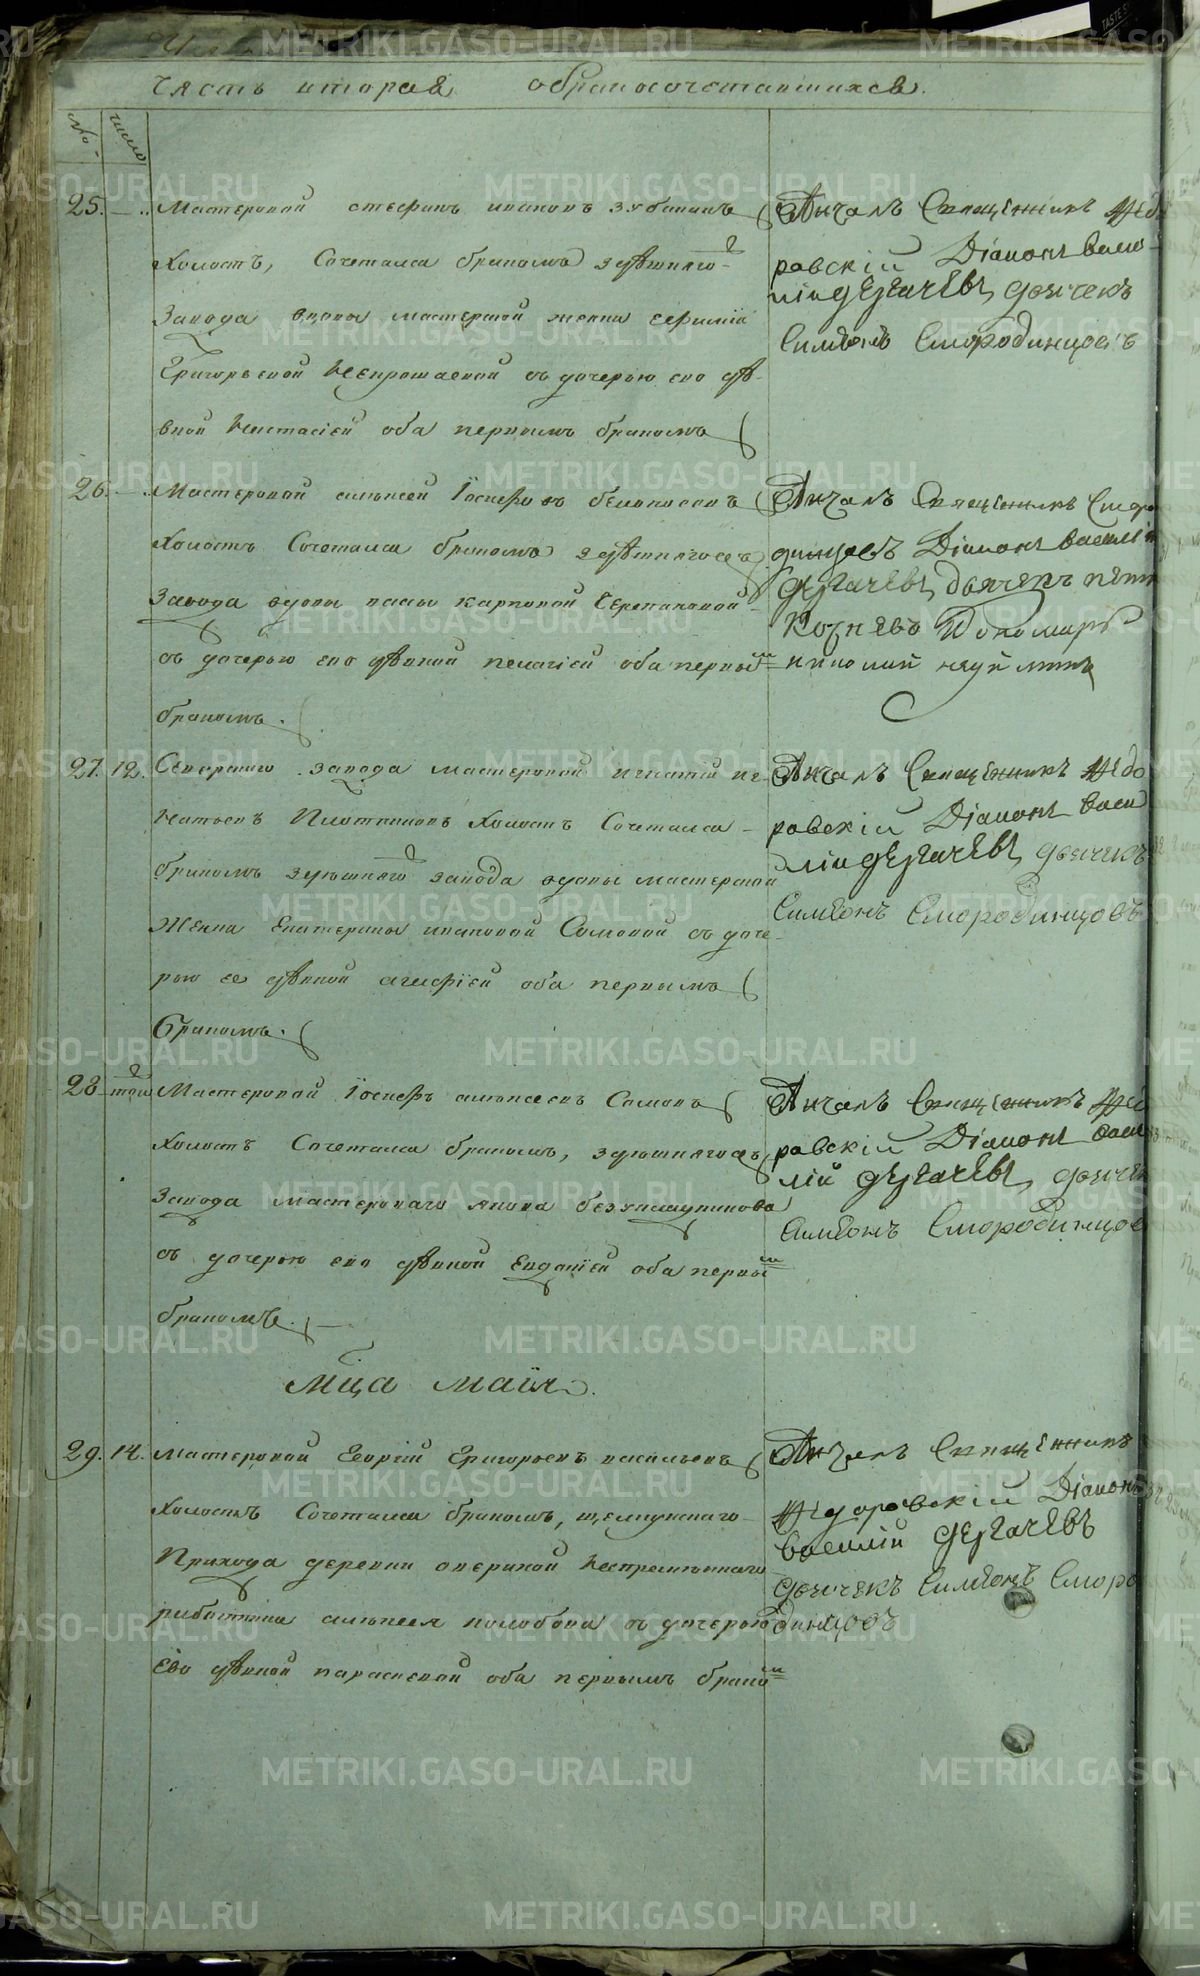 часть вторая о бракосочетавшихся.
№ число
25. — Мастеровой стефанъ ивановъ зубакинъ
холостъ, Сочетался бракомъ здѣшняго
завода вдовы мастерской жены ефимiи
Григорьевой Непрошаевой съ дочерью ево дѣ-
вкой Настасiей оба первымъ бракомъ
Вѣнчалъ Священникъ Ѳедо
ровскiй Дiаконъ васи-
лiй дергачевъ, дьячекъ
Симеонъ Смородинцовъ
26. — Мастеровой алексей Iосифовъ белоносовъ
холостъ Сочетался бракомъ здѣшнягосъ
завода вдовы васы карповой Черепановой
съ дочерью ево дѣвкой пелагiей оба первым
бракомъ.
Вѣнчалъ Священникъ Смуро
динцовъ Дiаконъ василiй
дергачевъ, дьячекъ петръ
Кознявъ Пономарь
николай
27. 12. Северскаго завода мастеровой игнатiй иг-
натьевъ Плотниковъ холостъ Сочетался
бракомъ здѣшняго завода вдовы мастерской
жены Екатерины ивановой Сомовой съ доче-
рью ее дѣвкой агафiей оба первымъ
бракомъ.
Вѣнчалъ Священникъ Ѳедо
ровскiй Дiаконъ васи
лiй дергачевъ, дьячекъ
Симеонъ Смородинцовъ
28 тож Мастеровой Iосифъ алексеевъ Сомовъ
холостъ Сочетался бракомъ, здѣшнягосъ
завода мастероваго якова безукладникова
съ дочерью ево дѣвкой Евдокiей оба первым
бракомъ.
Вѣнчалъ Священникъ Ѳедо
ровскiй Дiаконъ васи
лiй дергачевъ, дьячек
Симеонъ Смородинцов
Мца маiя.
29. 14. мастеровой Георгiй Григорьевъ васильевъ
холостъ Сочетался бракомъ, щелкунскаго
Прихода деревни авериной непременнаго
работника алексея колобова съ дочерью
ево дѣвкой параскевой оба первымъ браком
Вѣнчалъ Священникъ
Ѳедоровскiй Дiаконъ
василiй дергачевъ
дьячекъ Симеонъ Сморо
динцовъ
METRIKI.GASO-URAL.RU